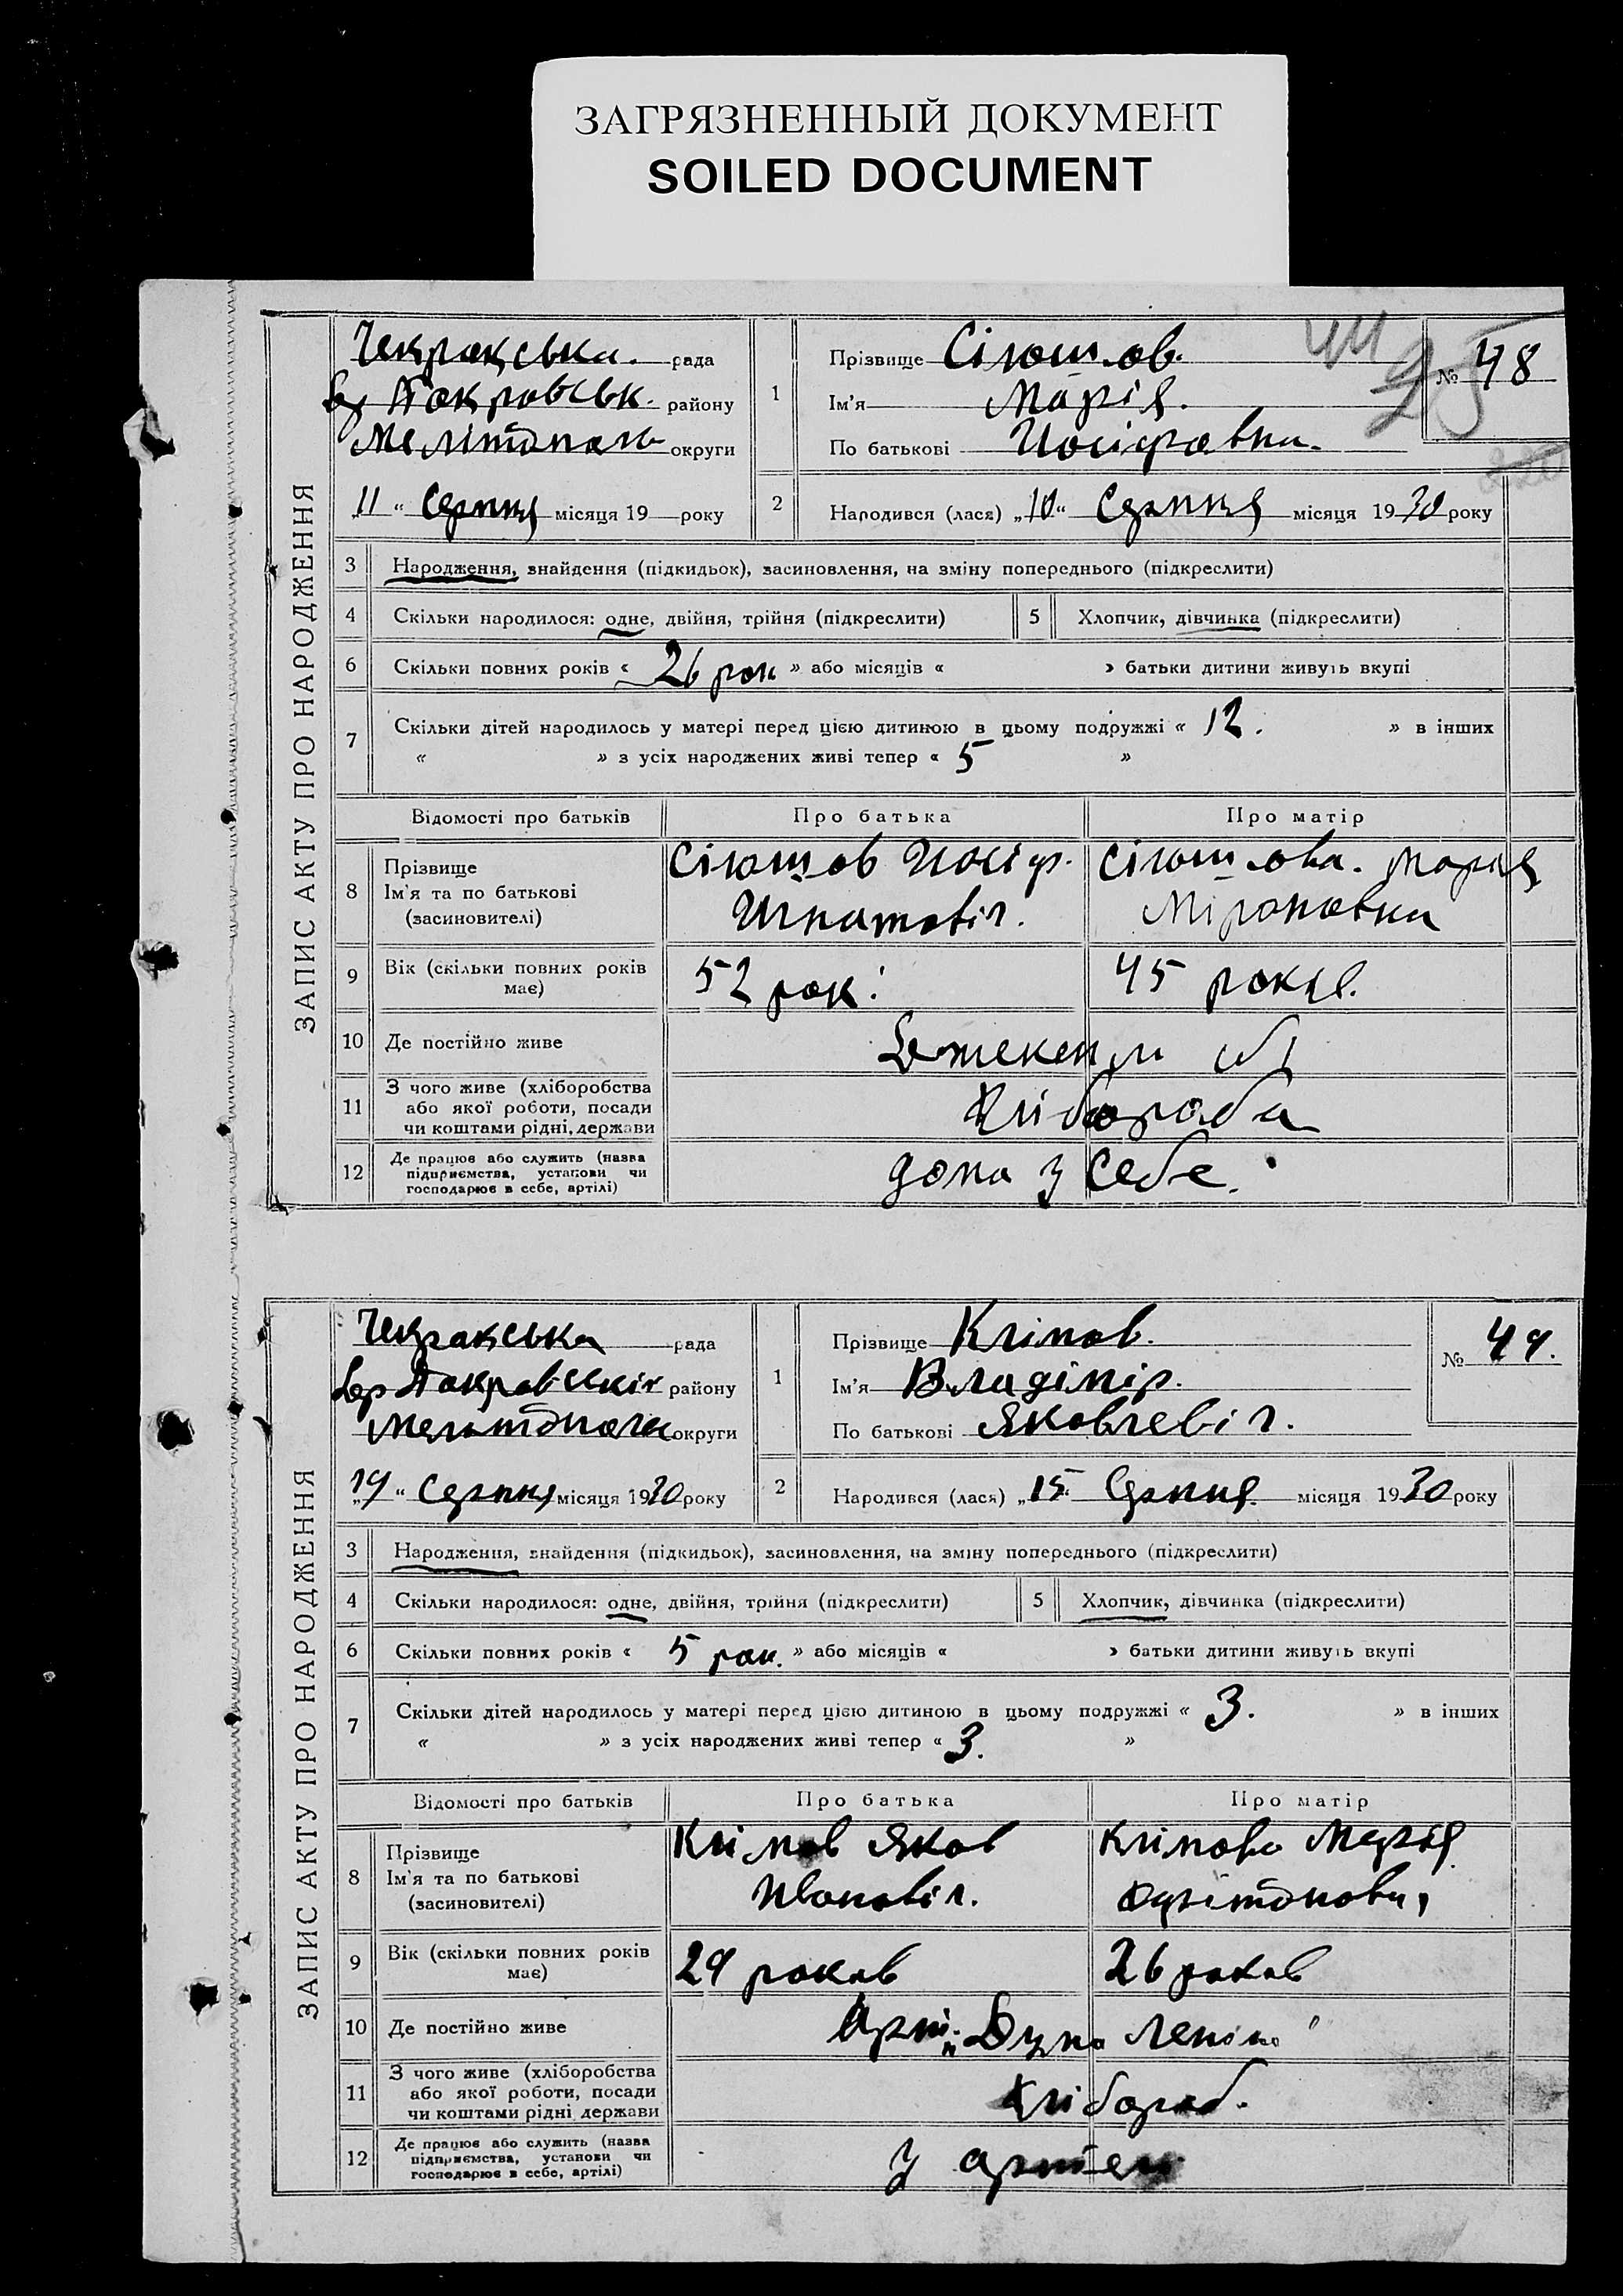 ЗАГРЯЗНЕННЫЙ ДОКУМЕНТ
SOILED DOCUMENT
ЗАПИС АКТУ ПРО НАРОДЖЕННЯ
Чекракська. рада
району
округи
„11“ Серпня місяця 19 року
1
Прізвище Сілюшов.
Ім'я Марія.
По батькові Иосіфовна.
№ 48
2
Народився (лася) „10“ Серпня місяця 1930 року
3 Народження, знайдення (підкидьок), засиновлення, на зміну попереднього (підкреслити)
4 Скільки народилося: одне, двійня, трійня (підкреслити)
5 Хлопчик, дівчинка (підкреслити)
6 Скільки повних років « 26 рок » або місяців « » батьки дитини живуть вкупі
7 Скільки дітей народилось у матері перед цією дитиною в цьому подружжі « 12. » в інших
« » з усіх народжених живі тепер « 5 »
Відомості про батьків Про батька Про матір
8 Прізвище
Ім'я та по батькові
(засиновителі)
Сілюшов Иосіф.
Игнатовіч.
Сілюшова. Марія
Міроновна
9 Вік (скільки повних років
має)
52 рок. 45 років.
10 Де постійно живе
11 З чого живе (хліборобства
або якої роботи, посади
чи коштами рідні, держави
Хлібороба
12 Де працює або служить (назва
підприємства, установи чи
господарює в себе, артілі)
дома у себе.
ЗАПИС АКТУ ПРО НАРОДЖЕННЯ
Чекракська рада
району
округи
„19“ Серпня місяця 1930 року
1
Прізвище Клімов.
Ім'я Владімір.
По батькові Яковлевіч.
№ 49.
2
Народився (лася) „15“ Серпня місяця 1930 року
3 Народження, знайдення (підкидьок), засиновлення, на зміну попереднього (підкреслити)
4 Скільки народилося: одне, двійня, трійня (підкреслити)
5 Хлопчик, дівчинка (підкреслити)
6 Скільки повних років « 5 рок. » або місяців « » батьки дитини живуть вкупі
7 Скільки дітей народилось у матері перед цією дитиною в цьому подружжі « 3. » в інших
« » з усіх народжених живі тепер « 3. »
Відомості про батьків Про батька Про матір
8 Прізвище
Ім'я та по батькові
(засиновителі)
Клімов Яков
Ивановіч.
Клімова Марія
9 Вік (скільки повних років
має)
29 роков 26 роков
10 Де постійно живе
Арт. „Дума Леніна“
11 З чого живе (хліборобства
або якої роботи, посади
чи коштами рідні держави
Хлібороб.
12 Де працює або служить (назва
підприємства, установи чи
господарює в себе, артілі)
У артели